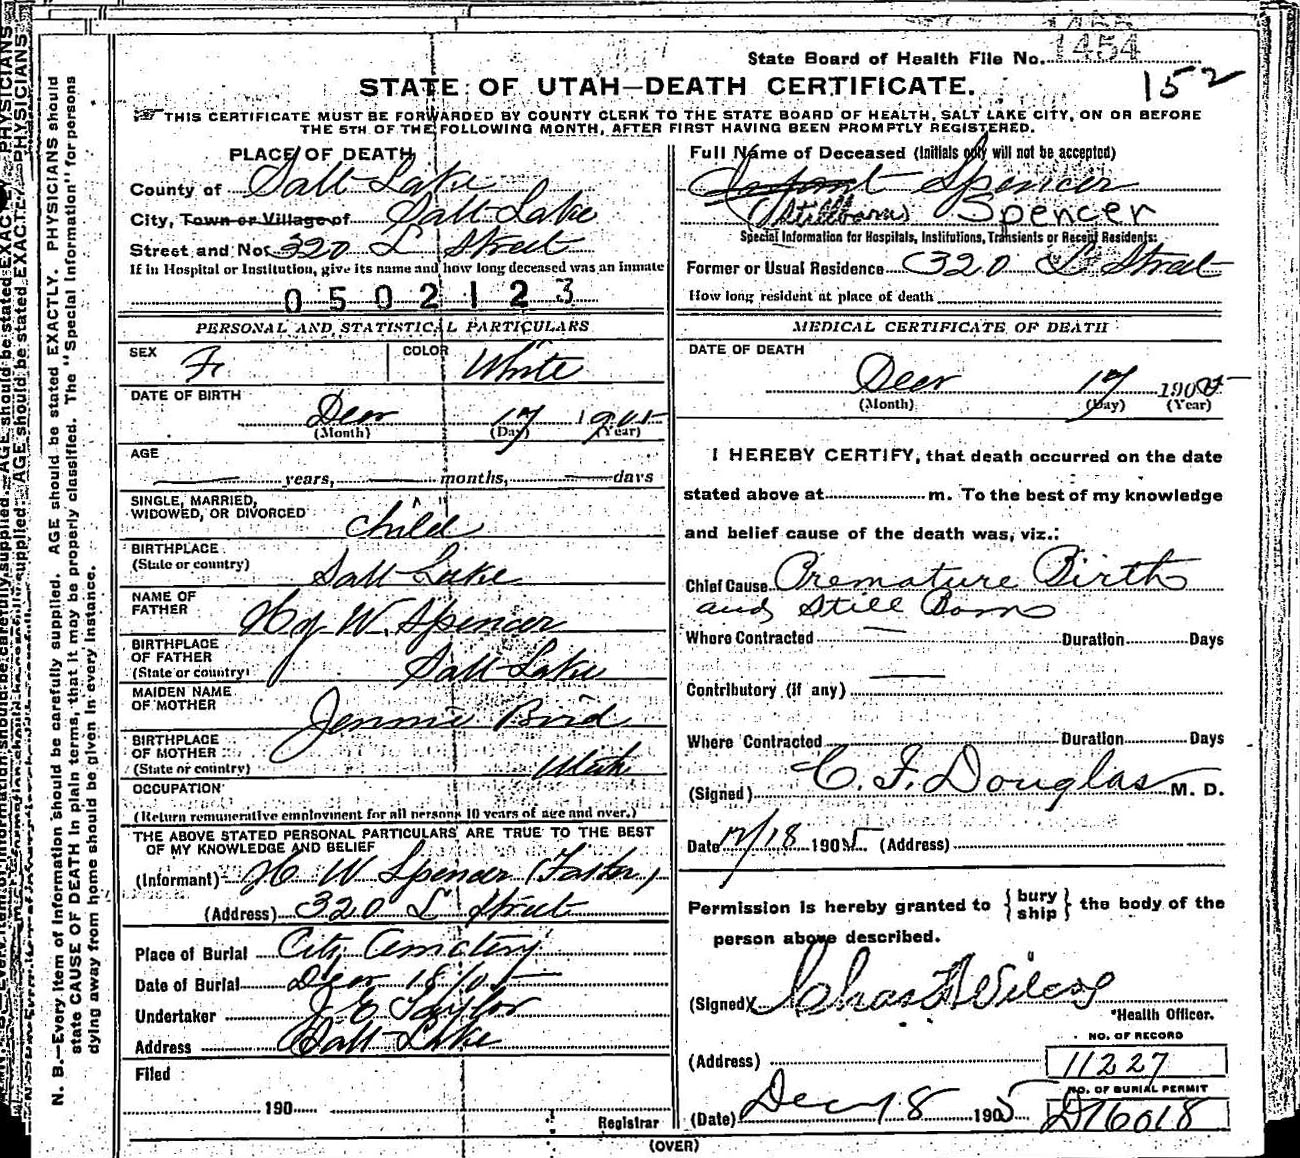 1455
State Board of Health File No. 1454
152
STATE OF UTAH—DEATH CERTIFICATE.
THIS CERTIFICATE MUST BE FORWARDED BY COUNTY CLERK TO THE STATE BOARD OF HEALTH, SALT LAKE CITY, ON OR BEFORE
THE 5TH OF THE FOLLOWING MONTH, AFTER FIRST HAVING BEEN PROMPTLY REGISTERED.
PLACE OF DEATH
County of Salt Lake
City, Town or Village of Salt Lake
Street and No. 320 L Street
If in Hospital or Institution, give its name and how long deceased was an inmate
0502123
PERSONAL AND STATISTICAL PARTICULARS
SEX F. COLOR White
DATE OF BIRTH
Decr 17 1905
(Month) (Day) (Year)
AGE
years, months, days
SINGLE, MARRIED,
WIDOWED, OR DIVORCED Child
BIRTHPLACE
(State or country) Salt Lake
NAME OF
FATHER Hy W. Spencer
BIRTHPLACE
OF FATHER
(State or country) Salt Lake
MAIDEN NAME
OF MOTHER Jennie Bird
BIRTHPLACE
OF MOTHER
(State or country) Utah
OCCUPATION
(Return remunerative employment for all persons 10 years of age and over.)
THE ABOVE STATED PERSONAL PARTICULARS ARE TRUE TO THE BEST
OF MY KNOWLEDGE AND BELIEF
(Informant) H W Spencer (Father)
(Address) 320 L Street
Place of Burial City Cemetery
Date of Burial Decr 18/05
Undertaker J E Taylor
Address Salt Lake
Filed
190
Registrar
Full Name of Deceased (Initials only will not be accepted)
Infant Spencer
(Stillborn) Spencer
Special Information for Hospitals, Institutions, Transients or Recent Residents:
Former or Usual Residence 320 L Street
How long resident at place of death
MEDICAL CERTIFICATE OF DEATH
DATE OF DEATH
Decr 17 1905
(Month) (Day) (Year)
I HEREBY CERTIFY, that death occurred on the date
stated above at m. To the best of my knowledge
and belief cause of the death was, viz.:
Chief Cause Premature Birth
and Still Born
Where Contracted Duration Days
Contributory (if any)
Where Contracted Duration Days
(Signed) C. F. Douglas M. D.
Date 12/18 1905 (Address)
Permission is hereby granted to { bury ship } the body of the
person above described.
(Signed) Chas A Wilcox
*Health Officer.
NO. OF RECORD
(Address) 11227
NO. OF BURIAL PERMIT
(Date) Dec 18 1905 D16018
(OVER)
N. B.—Every item of information should be carefully supplied. AGE should be stated EXACTLY. PHYSICIANS should
state CAUSE OF DEATH in plain terms, that it may be properly classified. The "Special Information" for persons
dying away from home should be given in every instance.